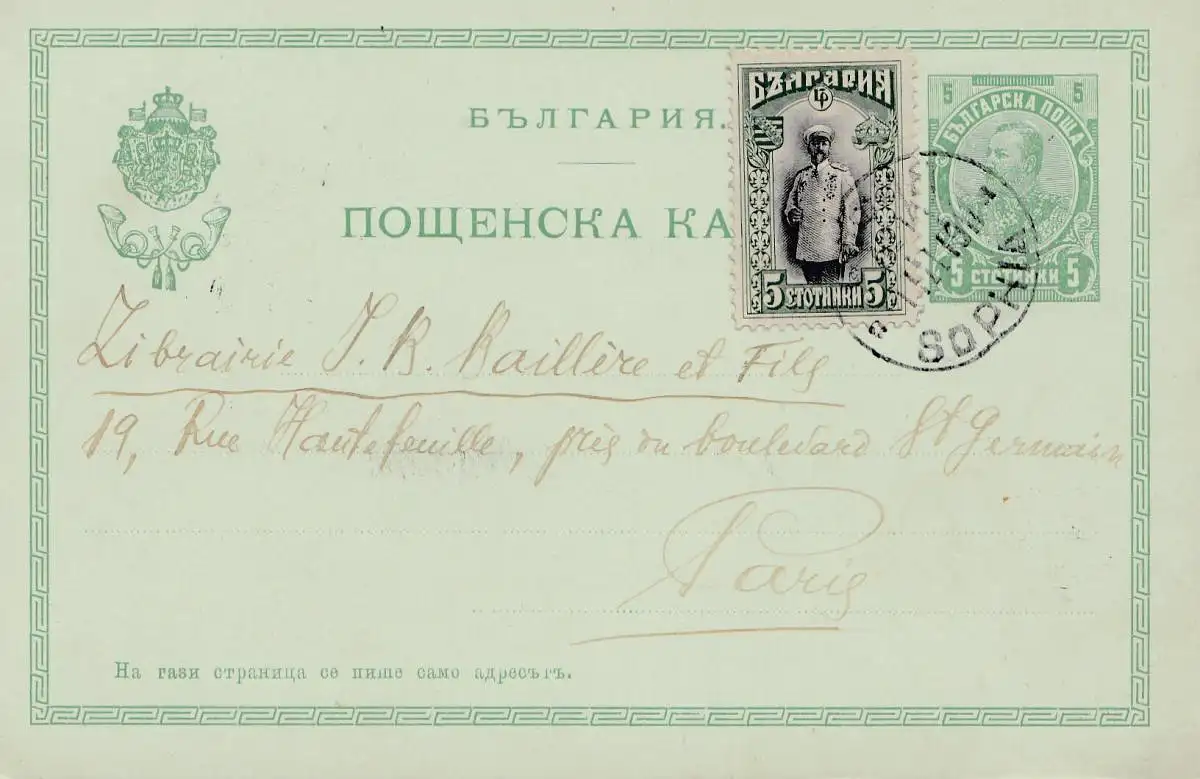 БЪЛГАРИЯ.
ПОЩЕНСКА КА
БЪЛГАРИЯ
5 СТОТИНКИ 5
5 5
БЪЛГАРСКА ПОЩА
5 СТОТИНКИ 5
SOPHIA
Librairie J. B. Baillère et Fils
19, Rue Hautefeuille, près du boulevard St Germain
Paris
На тази страница се пише само адресътъ.